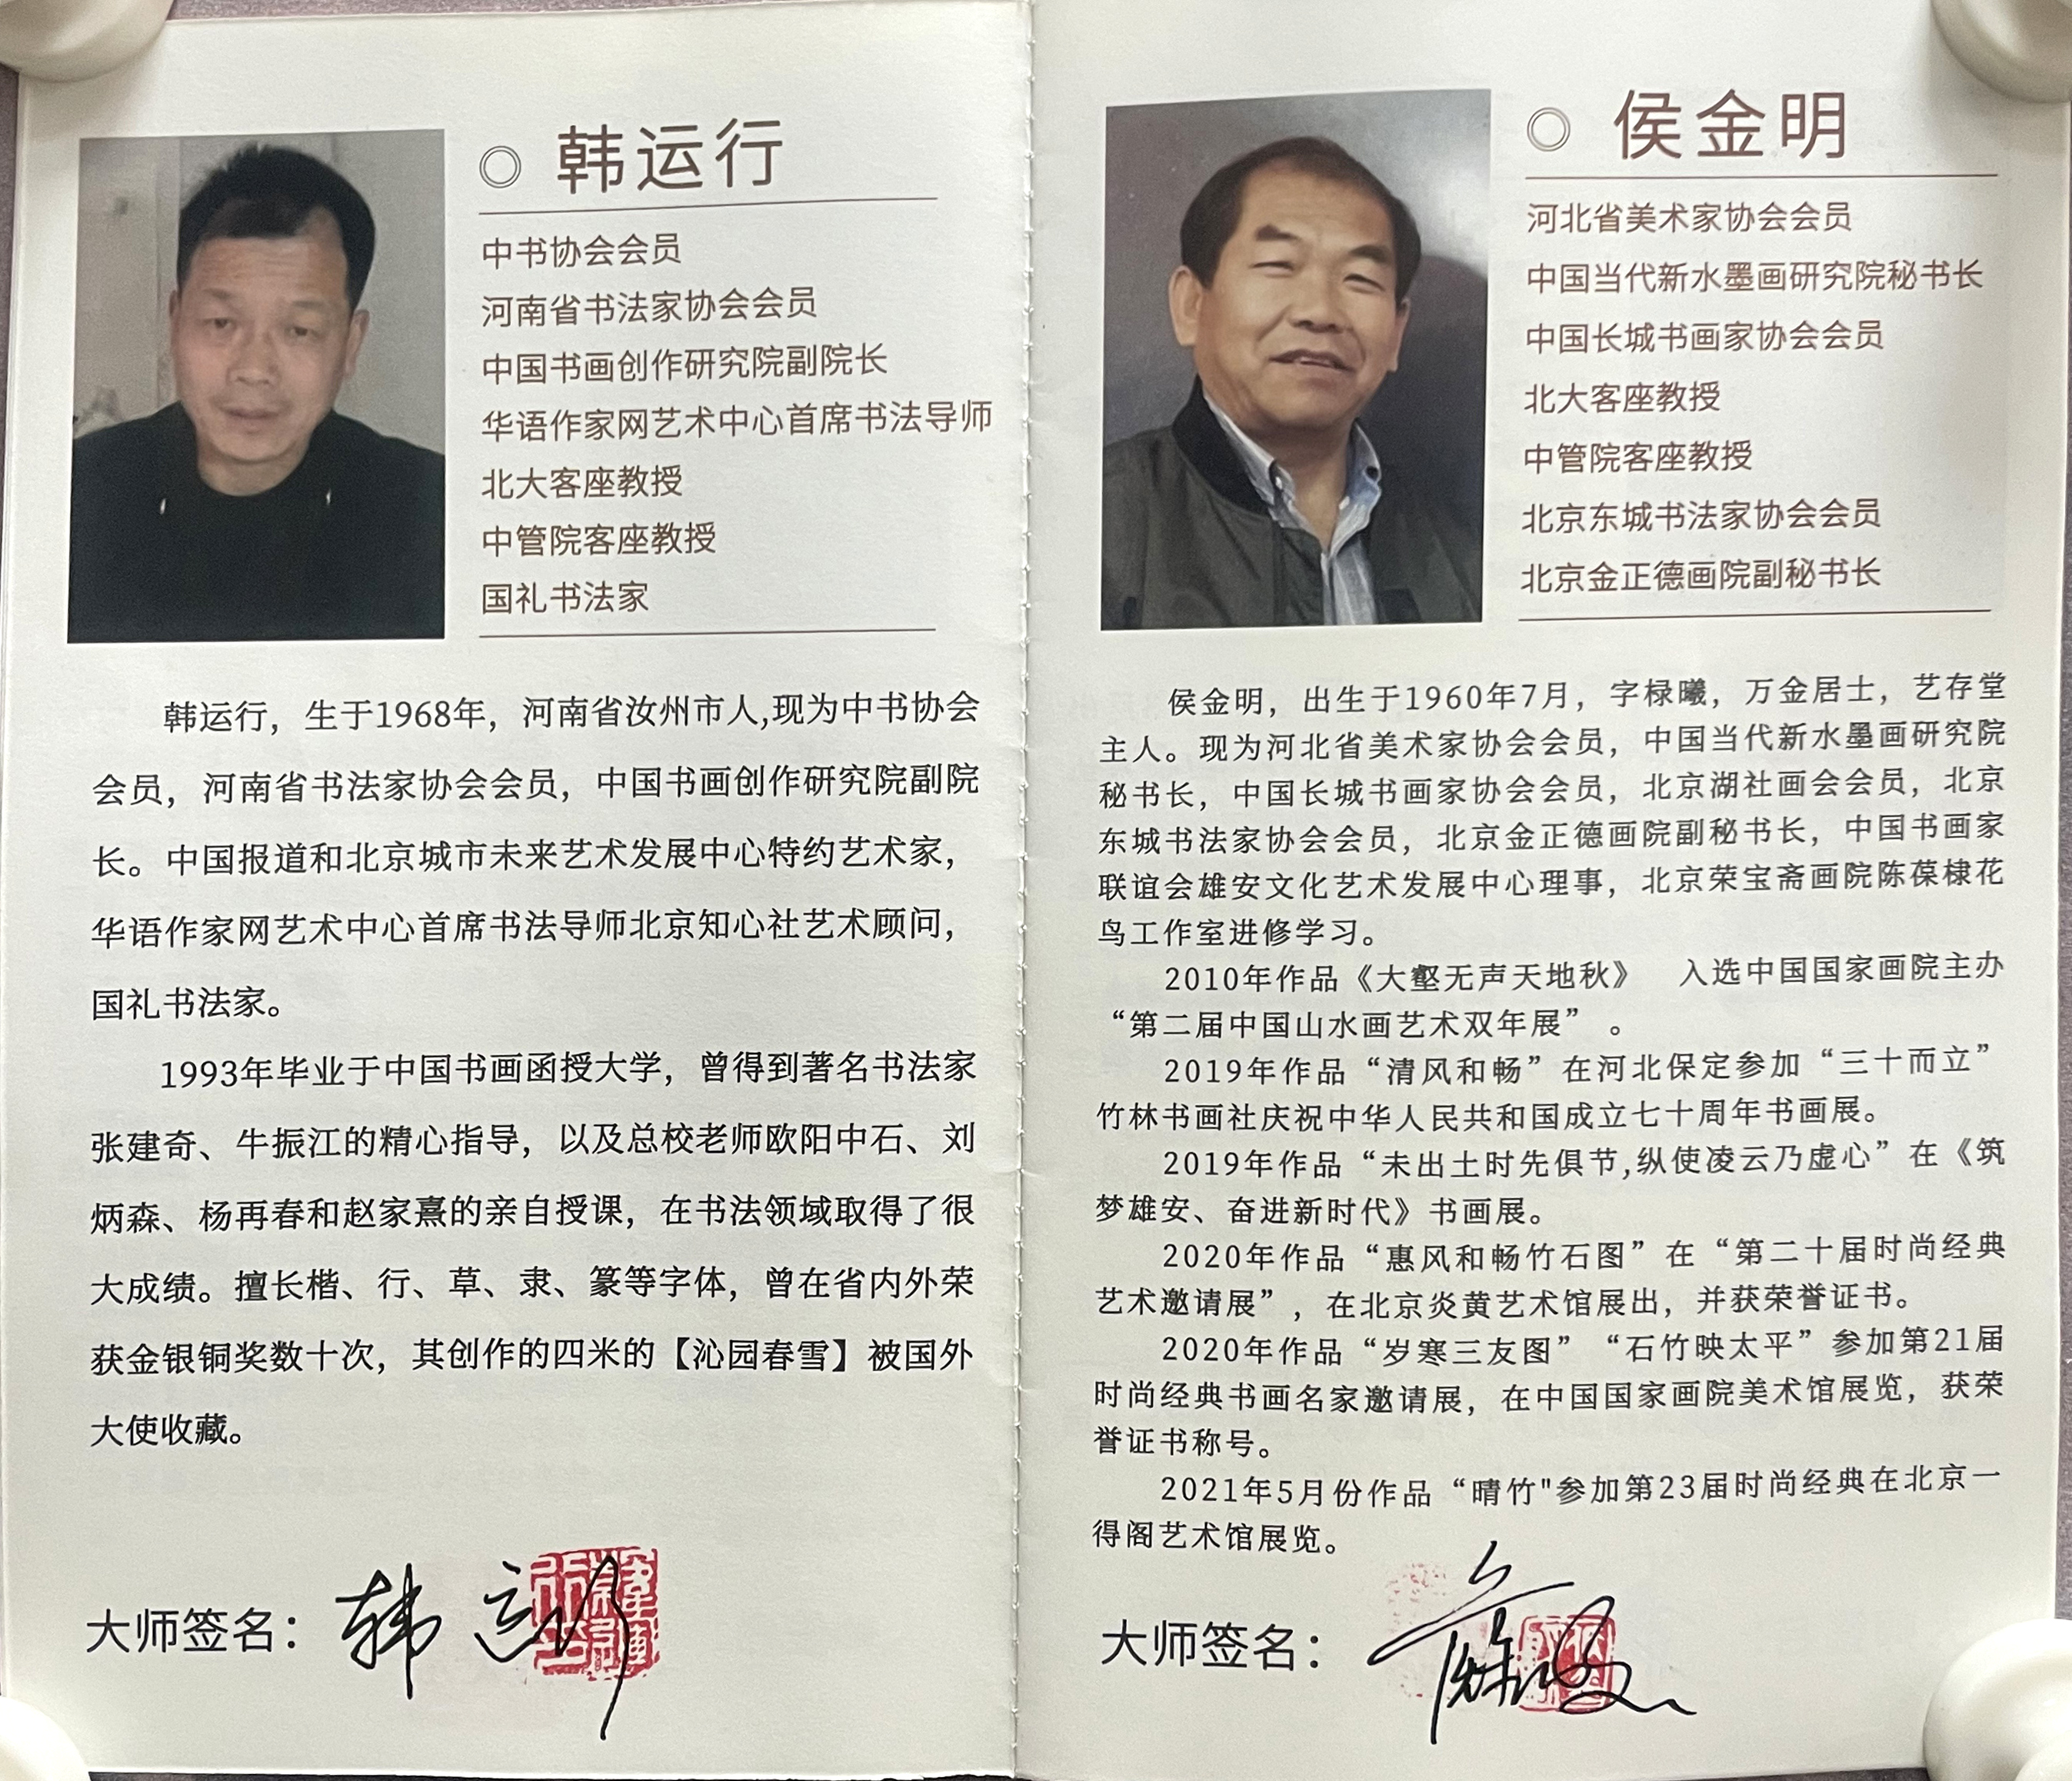 ◎ 韩运行
中书协会会员
河南省书法家协会会员
中国书画创作研究院副院长
华语作家网艺术中心首席书法导师
北大客座教授
中管院客座教授
国礼书法家
韩运行，生于1968年，河南省汝州市人,现为中书协会
会员，河南省书法家协会会员，中国书画创作研究院副院
长。中国报道和北京城市未来艺术发展中心特约艺术家，
华语作家网艺术中心首席书法导师北京知心社艺术顾问，
国礼书法家。
1993年毕业于中国书画函授大学，曾得到著名书法家
张建奇、牛振江的精心指导，以及总校老师欧阳中石、刘
炳森、杨再春和赵家熹的亲自授课，在书法领域取得了很
大成绩。擅长楷、行、草、隶、篆等字体，曾在省内外荣
获金银铜奖数十次，其创作的四米的【沁园春雪】被国外
大使收藏。
大师签名：韩运行
◎ 侯金明
河北省美术家协会会员
中国当代新水墨画研究院秘书长
中国长城书画家协会会员
北大客座教授
中管院客座教授
北京东城书法家协会会员
北京金正德画院副秘书长
侯金明，出生于1960年7月，字椂曦，万金居士，艺存堂
主人。现为河北省美术家协会会员，中国当代新水墨画研究院
秘书长，中国长城书画家协会会员，北京湖社画会会员，北京
东城书法家协会会员，北京金正德画院副秘书长，中国书画家
联谊会雄安文化艺术发展中心理事，北京荣宝斋画院陈葆棣花
鸟工作室进修学习。
2010年作品《大壑无声天地秋》 入选中国国家画院主办
“第二届中国山水画艺术双年展” 。
2019年作品“清风和畅”在河北保定参加“三十而立”
竹林书画社庆祝中华人民共和国成立七十周年书画展。
2019年作品“未出土时先俱节,纵使凌云乃虚心”在《筑
梦雄安、奋进新时代》书画展。
2020年作品“惠风和畅竹石图”在“第二十届时尚经典
艺术邀请展”，在北京炎黄艺术馆展出，并获荣誉证书。
2020年作品“岁寒三友图”“石竹映太平”参加第21届
时尚经典书画名家邀请展，在中国国家画院美术馆展览，获荣
誉证书称号。
2021年5月份作品“晴竹"参加第23届时尚经典在北京一
得阁艺术馆展览。
大师签名：